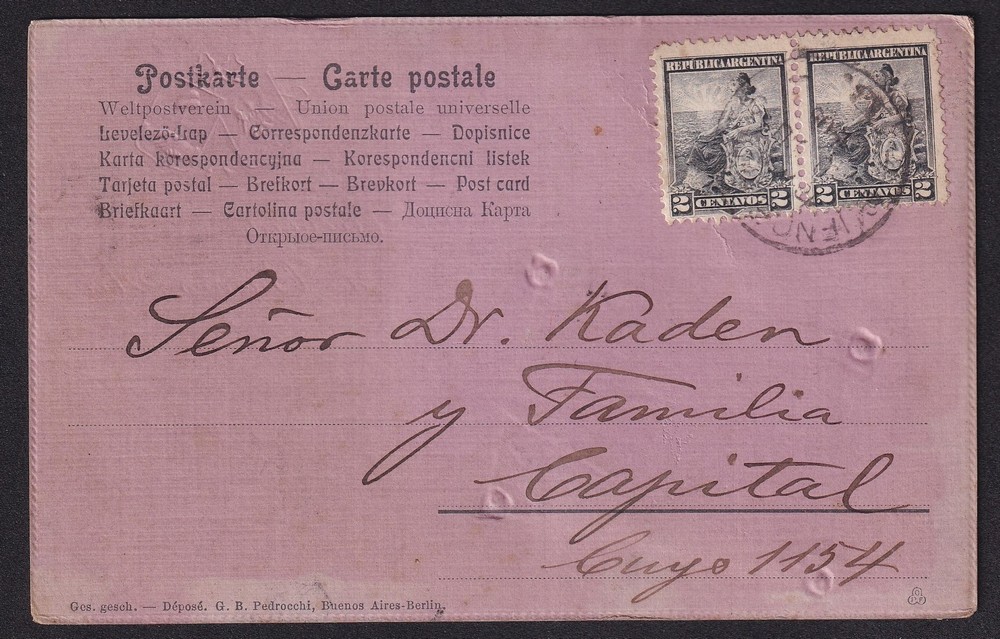 Postkarte — Carte postale
Weltpostverein — Union postale universelle
Levelező-Lap — Correspondenzkarte — Dopisnice
Karta korespondencyjna — Korespondencni listek
Tarjeta postal — Brefkort — Brevkort — Post card
Briefkaart — Cartolina postale — Доцисна Карта
Открыое-письмо.
REPUBLICA ARGENTINA
2 CENTAVOS 2
REPUBLICA ARGENTINA
2 CENTAVOS 2
Señor Dr. Kaden
y Familia
Capital
Cuyo 1154
Ges. gesch. — Déposé. G. B. Pedrocchi, Buenos Aires-Berlin.